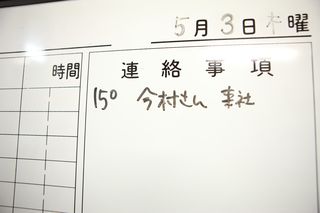 5月3日木曜
時間
連絡事項
15⁰ 今村さん 来社